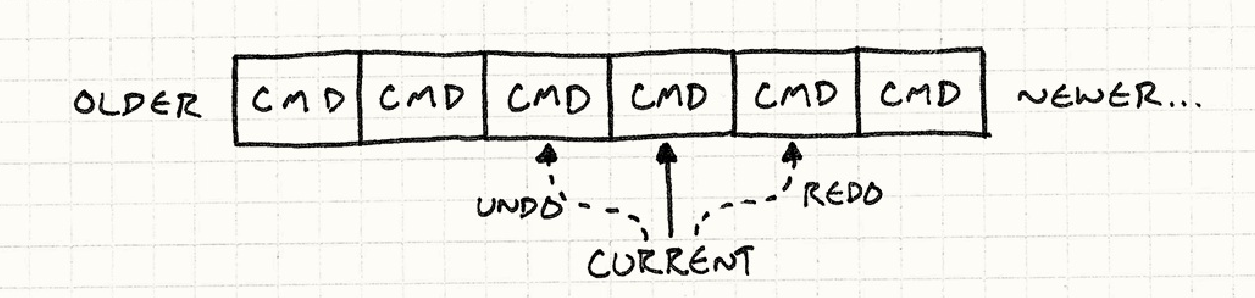 OLDER CMD CMD CMD CMD CMD CMD NEWER...
UNDO REDO
CURRENT